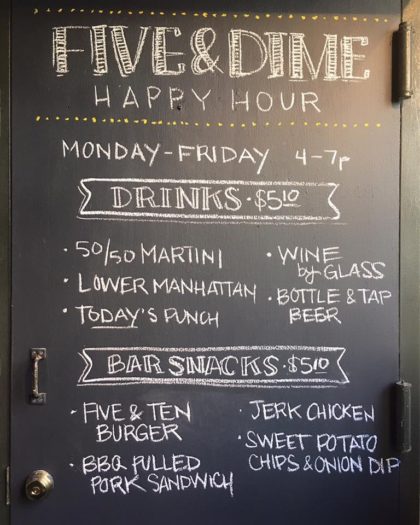 FIVE & DIME
HAPPY HOUR
MONDAY-FRIDAY 4-7p
DRINKS · $5.10
· 50/50 MARTINI
· LOWER MANHATTAN
· TODAY'S PUNCH
· WINE
by GLASS
· BOTTLE & TAP
BEER
BAR SNACKS · $5.10
· FIVE & TEN
BURGER
· BBQ PULLED
PORK SANDWICH
· JERK CHICKEN
· SWEET POTATO
CHIPS & ONION DIP